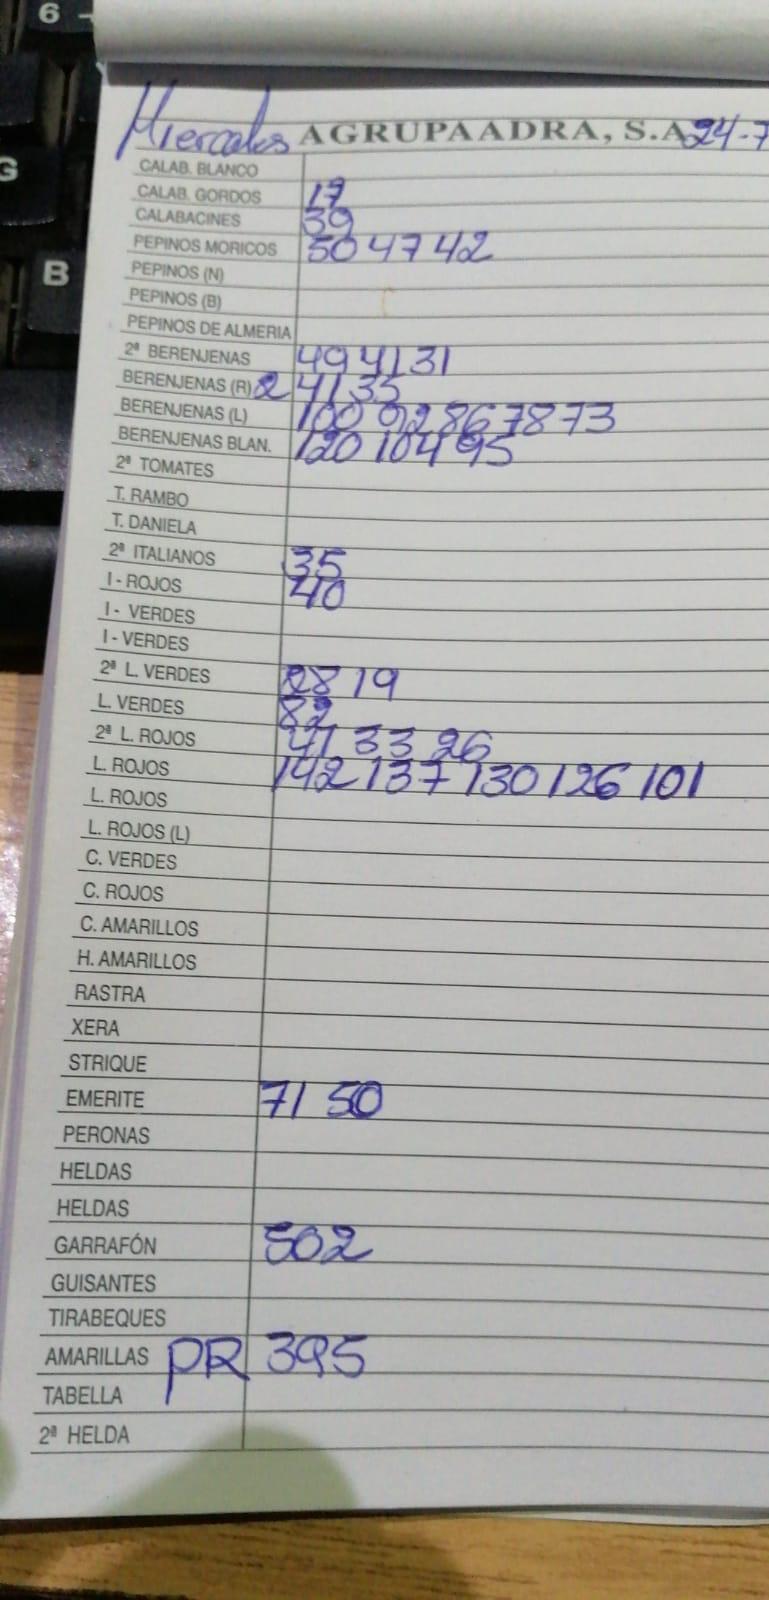 6 -
G
B
Miercoles AGRUPAADRA, S.A. 24-7
CALAB. BLANCO
CALAB. GORDOS 17
CALABACINES 39
PEPINOS MORICOS 50 47 42
PEPINOS (N)
PEPINOS (B)
PEPINOS DE ALMERIA
2ª BERENJENAS 49 41 31
BERENJENAS (R) 2 41 35
BERENJENAS (L) 100 92 86 78 73
BERENJENAS BLAN. 120 104 95
2ª TOMATES
T. RAMBO
T. DANIELA
2ª ITALIANOS 35
I - ROJOS 40
I - VERDES
I - VERDES
2ª L. VERDES 28 19
L. VERDES 82
2ª L. ROJOS 41 33 26
L. ROJOS 142 137 130 126 101
L. ROJOS
L. ROJOS (L)
C. VERDES
C. ROJOS
C. AMARILLOS
H. AMARILLOS
RASTRA
XERA
STRIQUE
EMERITE 71 50
PERONAS
HELDAS
HELDAS
GARRAFÓN 502
GUISANTES
TIRABEQUES
AMARILLAS PR 395
TABELLA
2ª HELDA